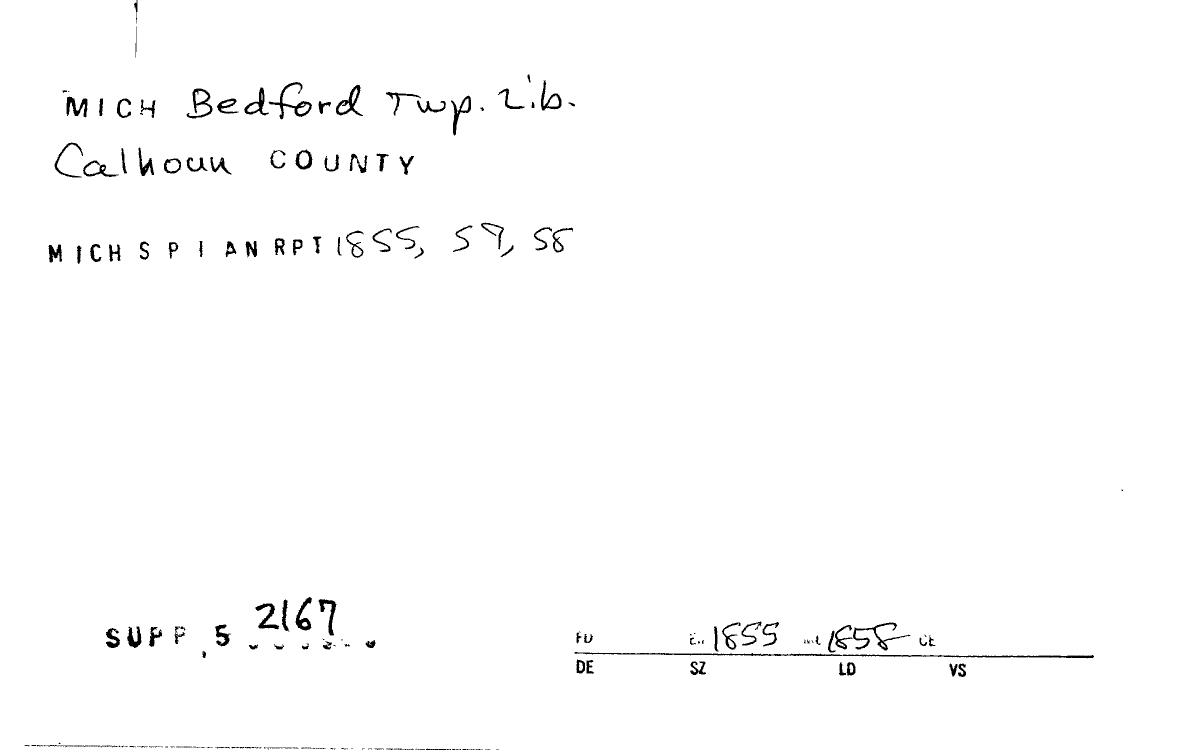 MICH Bedford Twp. Lib.
Calhoun COUNTY
MICH S P I AN RPT 1855, 57, 58
SUPP. 5 2167
FD 1855 1858 CE
DE SZ LD VS